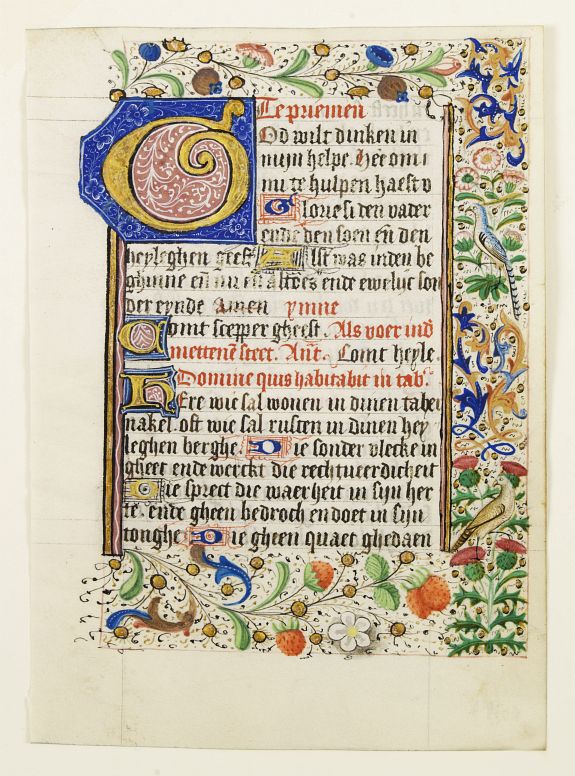 Te priemen
God wilt dincken in
mijn helpe. Here om
mi te hulpen haest v
Glorie si den vader
ende den soen en den
heyleghen gheest Alst was inden be
ghinne en nu en altoes ende ewelijc son
der eynde Amen ymne
Comt scepper gheest. Als voer ind
mettene steet. Ant. Comt heyle.
Domine quis habitabit in tab.
Here wie sal wonen in dinen taber
nakel. oft wie sal rusten in dinen hey
leghen berghe. Die sonder vlecke in
gheet ende werckt die rechtueerdicheit
Die sprect die waerheit in sijn her
te. ende gheen bedroch en doet in sijn
tonghe Die gheen quaet ghedaen